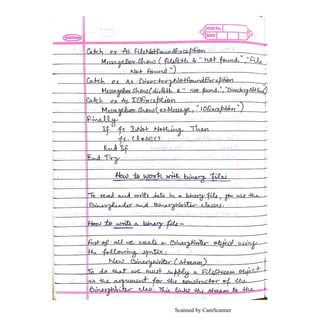 PAGE No.
DATE
Catch ex As FileNotFoundException
MessageBox.Show (filePath & " not found.", "File
Not Found")
Catch ex As DirectoryNotFoundException
MessageBox.Show(dirPath & " not found.", "Directory
Catch ex As IOException
MessageBox.Show(ex.Message, "IOException")
Finally
If fs IsNot Nothing Then
fs.Close()
End If
End Try
How to work with binary files
To read and write data in a binary file, you use the
BinaryReader and BinaryWriter classes.
How to write a binary file:-
First of all we create a BinaryWriter object using
the following syntax:
New BinaryWriter (stream)
To do that we must supply a FileStream object
as the argument for the constructor of the
BinaryWriter class. This links the stream to the
Scanned by CamScanner